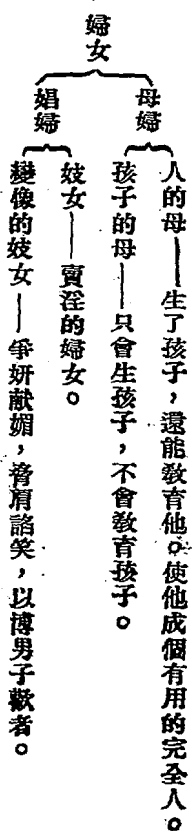 婦女
母婦
人的母——生了孩子，還能教育他。使他成個有用的完全人。
孩子的母——只會生孩子，不會教育孩子。
娼婦
妓女——賣淫的婦女。
變像的妓女——爭妍獻媚，脅肩諂笑，以博男子歡者。